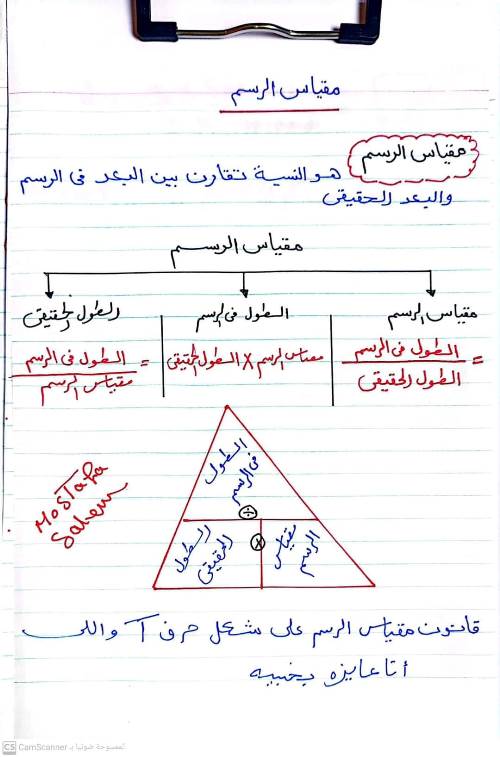 مقياس الرسم
مقياس الرسم هو النسبة تقارن بين البعد فى الرسم
والبعد الحقيقى
مقياس الرسم
مقياس الرسم
= الطول فى الرسم
الطول الحقيقى
الطول فى الرسم
مقياس الرسم X الطول الحقيقى
الطول الحقيقى
= الطول فى الرسم
مقياس الرسم
الطول
فى الرسم
÷
مقياس
الرسم
X
الطول
الحقيقى
Mostafa
Salem
قانون مقياس الرسم على شكل حرف T واللى
أنا عايزه بخبيه
CS CamScanner الممسوحة ضوئيا بـ